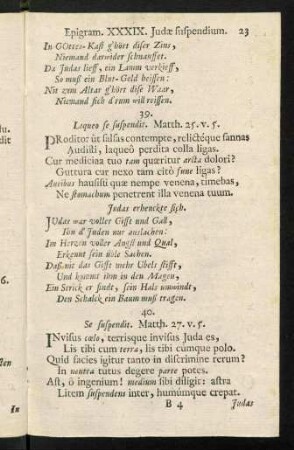 Epigram. XXXIX. Judæ suspendium. 23
In GOttes-Kast g'hört diser Zins,
Niemand darwider schnauffet.
Da Judas lieff, ein Lamm verkieff,
So muß ein Blut-Geld heissen:
Nit zum Altar g'hört dise Waar,
Niemand sich d'rum will reissen.
39.
Laqueo se suspendit. Matth. 25. v. 5.
PRoditor ut salsas contempte, relictéque sannas
Audisti, laqueô perdita colla ligas.
Cur medicina tuo tam quæritur arcta dolori?
Guttura cur nexo tam citò fune ligas?
Auribus hausisti quæ nempe venena, timebas,
Ne stomachum penetrent illa venena tuum.
Judas erhenckte sich.
JUdas war voller Gifft und Gall,
Ihn d'Juden nur auslachen:
Im Hertzen voller Angst und Qual,
Erkennt sein üble Sachen.
Daßnit das Gifft mehr Ubels stifft,
Und kommt ihm in den Magen,
Ein Strick er findt, sein Hals umwindt,
Den Schalck ein Baum muß tragen.
40.
Se suspendit. Matth. 27. v. 5.
INvisus cælo, terrisque invisus Juda es,
Lis tibi cum terra, lis tibi cumque polo.
Quid facies igitur tanto in discrimine rerum?
In neutra tutus degere parte potes.
Ast, ô ingenium! medium sibi diligit: astra
Litem suspendens inter, humúmque crepat.
B 4 Judas